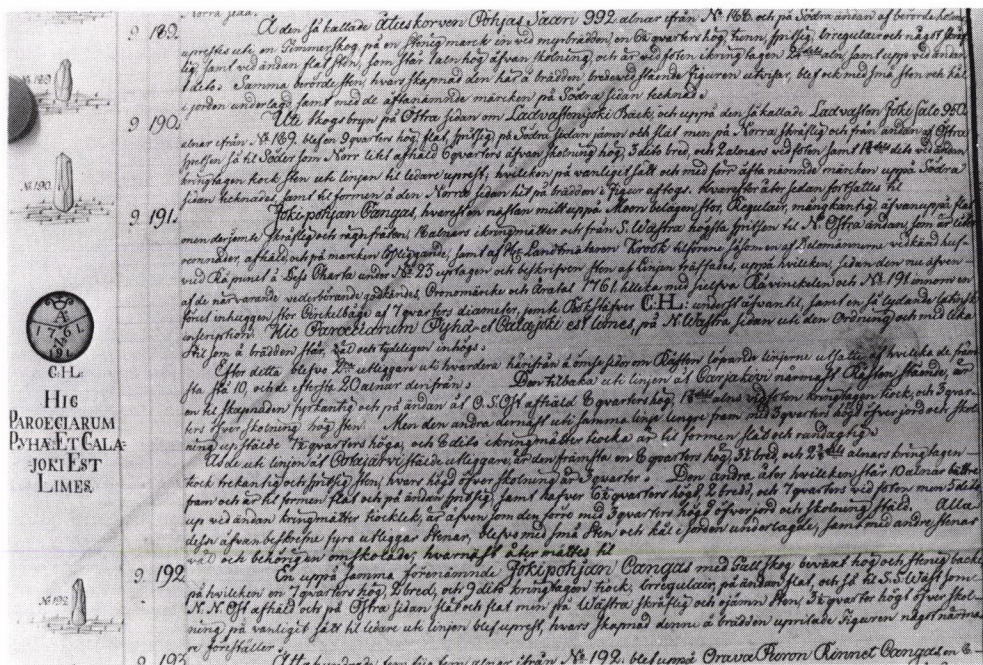 9 189. Å den så kallade Ätieskorven Pohjas Saari 992 alnar ifrån Nº 188. och på Södra ändan af berörde holme
uprestes ute en Timmerskog på en stenig marck in vid myrbrädden, en 6½ qvarters hög, tunn, spitsig, irregulair och något
lig, samt vid ändan flat sten, som står 1 aln hög åfvan skolning, och är vid foten ikring tagen
dito. Samma berörde sten, hvars skapnad den här å brädden bredevid stående Figuren utvisar, blef ock med små sten och kål
i jorden underlagd, samt med de åftanämnde märcken på Södra sidan teknad.
Nº 189.
9 190. Uti skogsbryn på Östra sidan om Ladvastenjoki Bäck, och uppå den så kallade Ladvasten Joki Salo 950
alnar ifrån Nº 189. blef en 9 qvarters hög, flat, spitsig, på Södra sidan jämn och slät men på Norra skräflig och från ändan af Östra
spitsen så til Söder som Norr likt afhäld 6 qvarters åfvan skolning hög, 3 dito bred, och 2 alnar vid foten samt dito vid ändan
kringtagen tiock sten uti linjen til ledare uprest, hvilcken på vanligit sätt och med förr åfta nämnde märcken uppå Södra
sidan teknades, samt til formen å den Norra sidan hit på brädden i Figur aftogs. Hvarefter åter sedan fortsattes til
Nº 190.
9 191. Jokipohjan Cangas, hvarest en nästan mitt uppå Moen belägen stor, Regulair, mångkantig, åfvanuppå flat
men derjemte skräflig och 18 alnar i kringmätter och från S. Wästra högsta spitsen til N. Östra ändan, som är lika
afhäld och på marcken löst liggande, samt af Hr Landtmätaren Krook tilförene såsom en af Bolomännerne vidkänd
vid Rå punct å Dess Charta under Nº 23 uptagen och beskrifven sten af Linjen träffades, uppå hvilcken, sedan den nu äfven
af de närvarande vederbörande godkändes, Cronomärcke och Åratal 1761 tillika med sielfva Råvinckelen och Nº 191 innom en
förut inhuggen stor Cirkelbåge af 7 qvarters diameter, jemte Bokstäfver C:H: underst åfvan til, samt en så lydande latinsk
inscription: Hic Paroeciarum Pyhä et Calajoki est limes, på N. Wästra sidan uti den Ordning och med lika
stil som å brädden står, väl och tydeligen inhögs.
1761
191
C:H:
HIC
PAROECIARUM
PYHÆ:ET CALA-
JOKI EST
LIMES
Efter detta blefvo 2ne utleggare uti hvardera härifrån å ömse sidor om Råsten löpande linjerne utsatte, af hvilcka de främ-
sta stå 10, och de efterste 20 alnar der ifrån. Den tilbaka uti linjen åt Carjakivi närmast Råsten stående, är
en til skapnaden fyrkantig och på ändan åt O.S.Ost afhäld 6 qvarters hög, alns vid foten kringtagen tiock, och 3 qvar-
ters öfver skolning hög sten. Men den andra dernäst uti samma linje längre fram med 3 qvarters högd öfver jord och skol-
ning upstälde 7½ qvarters höga, och 6 dito i kringmätter tiocka är til formen slät och rundagtig.
Af de uti linjen åt Cotajärvi stälde utleggare, är den främsta en 6 qvarters hög, 3½ bred och alnars kringtagen
tiock trekantig och spitsig sten, hvars högd öfver skolning är 3 qvarter. Den andra åter, hvilcken står 10 alnar bättre
fram och är til formen flat och på ändan spitsig, samt hafver 6½ qvarters högd, 2 bred, och 7 qvarters vid foten men 5 dito
up vid ändan kringmätter tiocklek, är äfven som den förre med 3 qvarters högd öfver jord och skolning stäld. Alla
desse åfvan beskrefne fyra utleggar stenar, blefvo med små sten och kål i jorden underlagde, samt med andre stenar
väl och behörigen omskolade, hvarnäst åter mättes til
9. 192 En uppå samma förenämnde Jokipohjan Cangas med Tall skog beväxt hög och stenig backe
på hvilcken en 7 qvarters hög, 2 bred, och 9 dito kringtagen tiock, irregulair, på ändan flat, och så til S.S.Wäst som
N.N.Ost afhäld och på Östra sidan slät och flat men på Wästra skräflig och ojämn sten, 3½ qvarter högt öfver skol-
ning på vanligit sätt til ledare uti linjen blef uprest, hvars skapnad denne å brädden upritade Figuren något närma-
re föreställer.
Nº 192
9. 193 Åttahundrade alnar ifrån Nº 192. blef uppå Orava Koron Rinnet Cangas en 6-